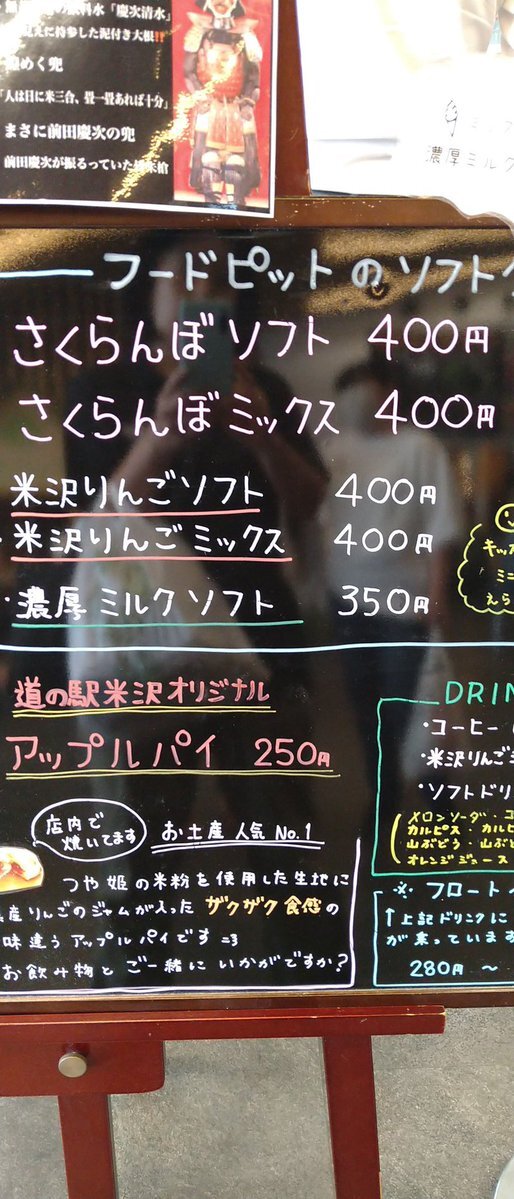 の飲料水「慶次清水」
見えに持参した泥付き大根!!
めく兜
「人は日に米三合、畳一畳あれば十分」
まさに前田慶次の兜
前田慶次が振るっていた
濃厚ミルク
フードピットのソフト
さくらんぼソフト 400円
さくらんぼミックス 400円
米沢りんごソフト 400円
・米沢りんごミックス 400円
・濃厚ミルクソフト 350円
キッ
ミニ
えら
道の駅米沢オリジナル
アップルパイ 250円
店内で
焼いてます
お土産人気No.1
つや姫の米粉を使用した生地に
産りんごのジャムが入った ザクザク食感の
味違うアップルパイです
お飲み物とご一緒にいかがですか?
DRIN
・コーヒー
・米沢りんご
・ソフトドリ
メロンソーダ・コ
カルピス・カルピ
山ぶどう・山ぶど
オレンジジュース
※フロート
↑上記ドリンクに
が乗っています
280円〜